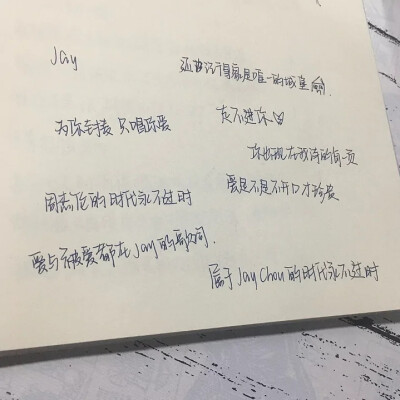 Jay
还要记得家是唯一的城堡
为你弹奏 只唱你爱
友不进你
你出现在我诗的每一页
周杰伦的时代永不过时
爱是不是不开口才珍贵
爱与被爱都在Jay的歌词.
属于Jay Chou的时代永不过时